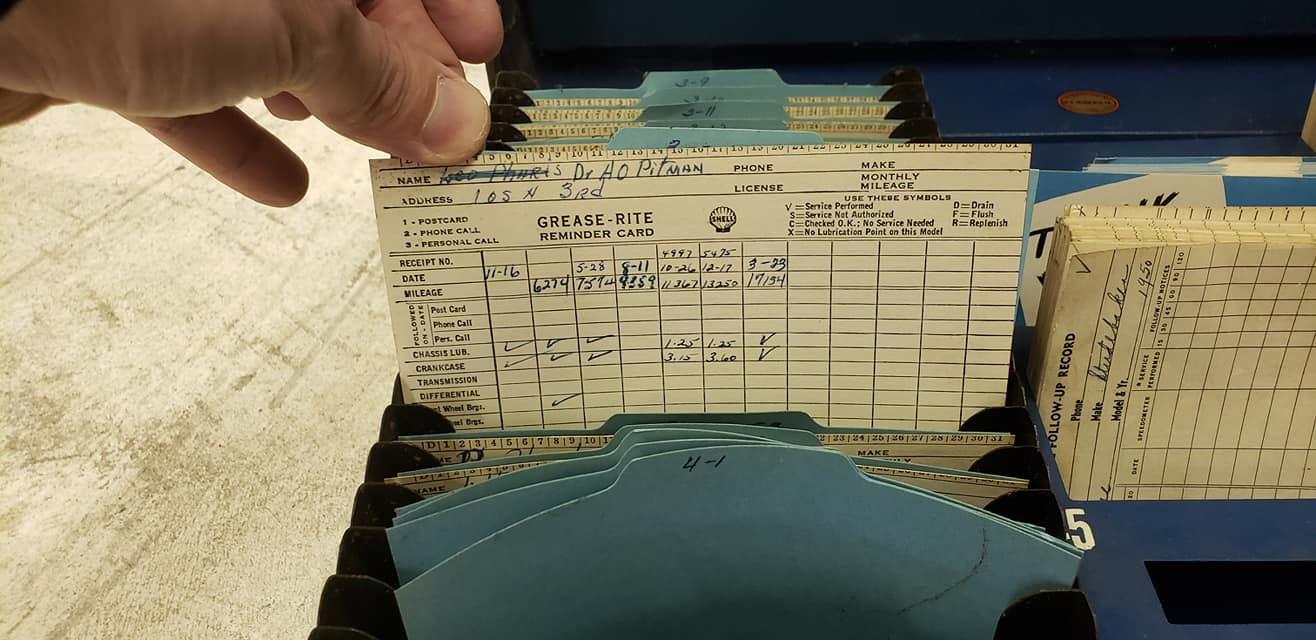 3-9
3-11
NAME Dr AO PITMAN PHONE MAKE
ADDRESS 105 N 3RD LICENSE MONTHLY MILEAGE
1 - POSTCARD
2 - PHONE CALL
3 - PERSONAL CALL
GREASE-RITE
REMINDER CARD
SHELL
USE THESE SYMBOLS
√=Service Performed D=Drain
S=Service Not Authorized F=Flush
C=Checked O.K.; No Service Needed R=Replenish
X=No Lubrication Point on this Model
RECEIPT NO. 4997 5475
DATE 11-16 5-28 8-11 10-26 12-17 3-23
MILEAGE 6274 7574 9359 11367 13250 17134
FOLLOWED ON - DATE
Post Card
Phone Call
Pers. Call
CHASSIS LUB. ✓ ✓ ✓ 1.25 1.25 ✓
CRANKCASE ✓ ✓ ✓ 3.15 3.60 ✓
TRANSMISSION
DIFFERENTIAL ✓
Wheel Brgs.
D 1 2 3 4 5 6 7 8 9 10 22 23 24 25 26 27 28 29 30 31
MAKE
NAME
4-1
FOLLOW-UP RECORD
Phone
Make Studebaker
Model & Yr. 1950
FOLLOW-UP NOTICES
15 30 45 60 90 120
SERVICE PERFORMED
SPEEDOMETER
DATE
5